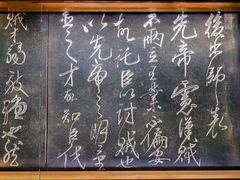 後出師表
先帝慮漢賊
不兩立王業不偏安
故託臣以討賊也
以先帝之明量
臣之才故知臣伐
賊才弱敵強也然